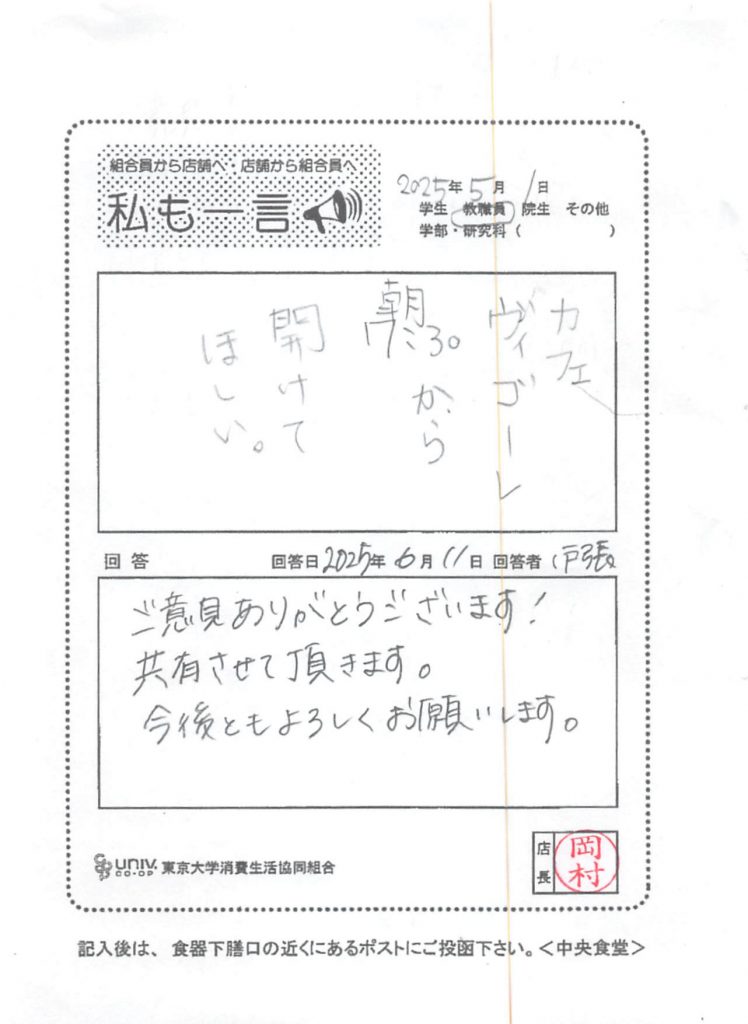 組合員から店舗へ・店舗から組合員へ
私も一言
2025年5月1日
学生 教職員 院生 その他
学部・研究科( )
カフェ
ヴィゴーレ
朝
から
開けて
ほしい。
回答 回答日2025年6月11日 回答者(戸張
ご意見ありがとうございます!
共有させて頂きます。
今後ともよろしくお願いします。
UNIV. CO-OP 東京大学消費生活協同組合
店長 岡村
記入後は、食器下膳口の近くにあるポストにご投函下さい。<中央食堂>